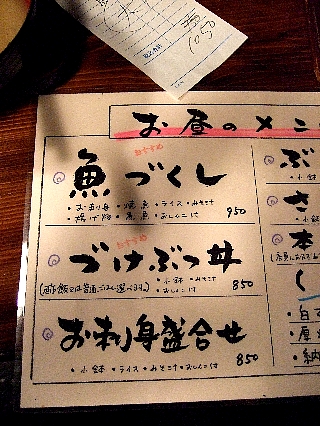 1050
お昼のメン
おすすめ
魚づくし
・お刺身・焼魚・ライス・みそ汁
・揚げ物・煮魚・おしんこ付
950
おすすめ
づけぶつ丼
・小鉢・みそ汁
・おしんこ付
850
お刺身盛合せ
・小鉢・ライス・みそ汁・おしんこ付
850
ぶ
・小鉢
さ
本
・白
・厚
・納